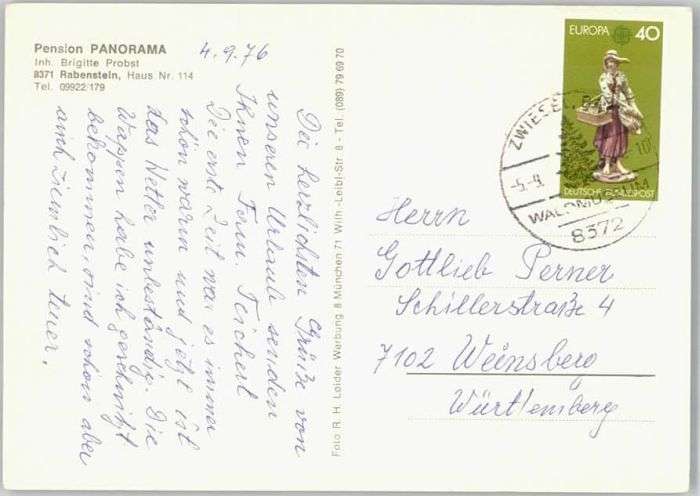 Pension PANORAMA
Inh. Brigitte Probst
8371 Rabenstein, Haus Nr. 114
Tel. 09922/179
4.9.76
Die herzlichsten Grüße von
unseren Urlaub senden
Ihnen Fam. Teichert
Die erste Zeit war es immer
schön warm und jetzt ist
das Wetter unbeständig. Die
Wappen habe ich geschnitzt
bekommen, sind schön aber
auch ziemlich teuer.
Foto R. H. Loider Werbung 8 München 71 Wilh.-Leibl-Str. 8 - Tel. (089) 79 69 70
EUROPA 40
DEUTSCHE BUNDESPOST
ZWIESEL
5.-9.
8372
Herrn
Gottlieb Perner
Schillerstraße 4
7102 Weinsberg
Württemberg